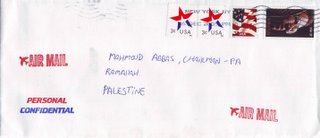 NEW YORK NY
3c USA
3c USA
AIR MAIL
MAHMOUD ABBAS, CHAIRMAN - PA
RAMALLAH
PALESTINE
PERSONAL
CONFIDENTIAL
AIR MAIL